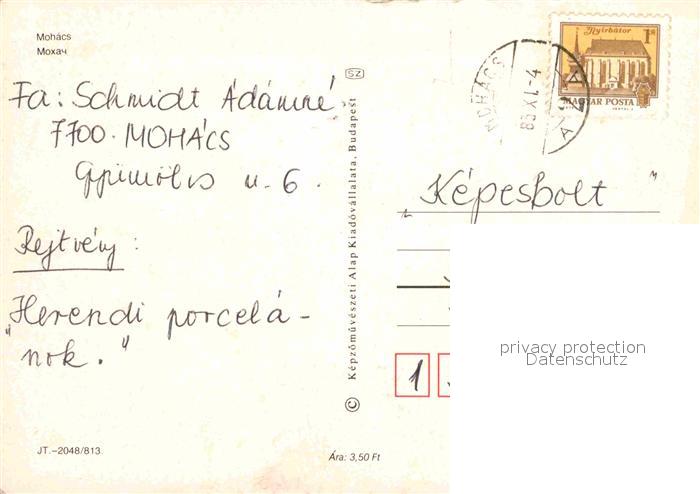 Mohács
Мохач
Fa: Schmidt Ádámné
7700. MOHÁCS
u. 6.
Rejtvény:
"Herendi porcelá-
nok."
SZ
© Képzőművészeti Alap Kiadóvállalata, Budapest
Nyírbátor
1 Ft
MAGYAR POSTA
MOHÁCS
"Képesbolt"
1
privacy protection
Datenschutz
JT.–2048/813
Ára: 3,50 Ft